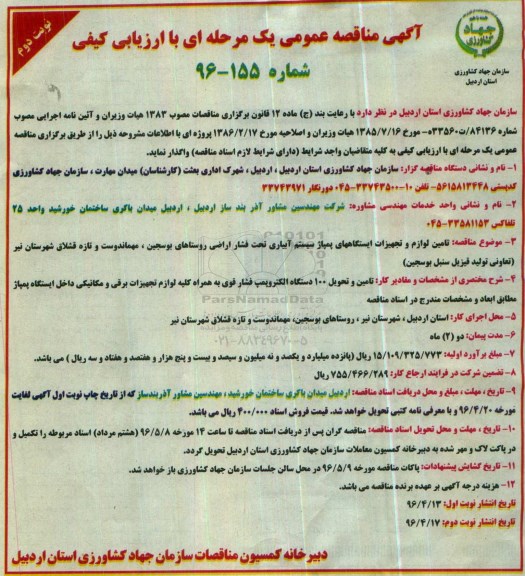 نوبت دوم
آگهی مناقصه عمومی یک مرحله ای با ارزیابی کیفی
شماره ۱۵۵-۹۶
جهاد
کشاورزی
سازمان جهاد کشاورزی
استان اردبیل
سازمان جهاد کشاورزی استان اردبیل در نظر دارد با رعایت بند (ج) ماده ۱۲ قانون برگزاری مناقصات مصوب ۱۳۸۳ هیات وزیران و آئین نامه اجرایی مصوب
شماره ۸۴۱۳۶/ت۳۳۵۶۰ه- مورخ ۱۳۸۵/۷/۱۶ هیات وزیران و اصلاحیه مورخ ۱۳۸۶/۲/۱۷ پروژه ای با اطلاعات مشروحه ذیل را از طریق برگزاری مناقصه
عمومی یک مرحله ای با ارزیابی کیفی به کلیه متقاضیان واجد شرایط (دارای شرایط لازم اسناد مناقصه) واگذار نماید.
۱- نام و نشانی دستگاه مناقصه گزار: سازمان جهاد کشاورزی استان اردبیل ، اردبیل ، شهرک اداری بعثت (کارشناسان) میدان مهارت ، سازمان جهاد کشاورزی
کدپستی ۵۶۱۵۸۱۳۴۴۸- تلفن ۱۰-۳۳۷۴۳۵۰۰-۰۴۵ دورنگار ۳۳۷۴۳۹۷۱
۲- نام و نشانی واحد خدمات مهندسی مشاوره: شرکت مهندسین مشاور آذر بند ساز اردبیل ، اردبیل میدان باکری ساختمان خورشید واحد ۲۵
تلفاکس ۳۳۵۸۱۱۵۳-۰۴۵
۳- موضوع مناقصه: تامین لوازم و تجهیزات ایستگاههای پمپاژ سیستم آبیاری تحت فشار اراضی روستاهای بوسجین ، مهماندوست و تازه قشلاق شهرستان نیر
(تعاونی تولید قیزیل سنبل بوسجین)
۴- شرح مختصری از مشخصات و مقادیر کار: تامین و تحویل ۱۰۰ دستگاه الکتروپمپ فشار قوی به همراه کلیه لوازم تجهیزات برقی و مکانیکی داخل ایستگاه پمپاژ
مطابق ابعاد و مشخصات مندرج در اسناد مناقصه
۵- محل اجرای کار: استان اردبیل ، شهرستان نیر ، روستاهای بوسجین، مهماندوست و تازه قشلاق شهرستان نیر
۶- مدت پیمان: دو (۲) ماه
۷- مبلغ برآورد اولیه: ۱۵/۱۰۹/۳۲۵/۷۷۳ ریال (پانزده میلیارد و یکصد و نه میلیون و سیصد و بیست و پنج هزار و هفتصد و هفتاد و سه ریال ) می باشد.
۸- تضمین شرکت در فرایند ارجاع کار: ۷۵۵/۴۶۶/۲۸۹ ریال
۹- تاریخ ، مهلت ، مبلغ و محل دریافت اسناد مناقصه: اردبیل میدان باکری ساختمان خورشید ، مهندسین مشاور آذربندساز که از تاریخ چاپ نوبت اول آگهی لغایت
مورخه ۹۶/۴/۲۰ و با معرفی نامه کتبی تحویل خواهد شد. قیمت فروش اسناد ۴۰۰/۰۰۰ ریال می باشد.
۱۰- تاریخ ، مهلت و محل تحویل اسناد مناقصه: مناقصه گران پس از دریافت اسناد مناقصه تا ساعت ۱۴ مورخه ۹۶/۵/۸ (هشتم مرداد) اسناد مربوطه را تکمیل و
در پاکت لاک و مهر شده به دبیرخانه کمسیون معاملات سازمان جهاد کشاورزی استان اردبیل تحویل گردد.
۱۱- تاریخ گشایش پیشنهادات: پاکات مناقصه مورخه ۹۶/۵/۹ در محل سالن جلسات سازمان جهاد کشاورزی باز خواهد شد.
۱۲- هزینه درجه آگهی بر عهده برنده مناقصه می باشد.
تاریخ انتشار نوبت اول: ۹۶/۴/۱۳
تاریخ انتشار نوبت دوم: ۹۶/۴/۱۷
دبیرخانه کمسیون مناقصات سازمان جهاد کشاورزی استان اردبیل
ParsNamadData
۰۲۱-۸۸۳۴۹۶۷۰-۵